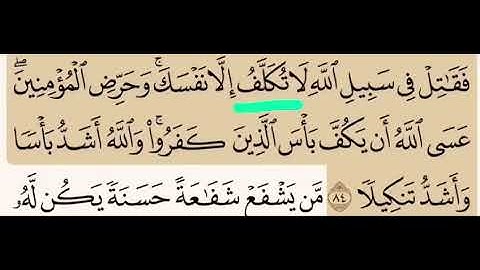 فَقَٰتِلۡ فِي سَبِيلِ ٱللَّهِ لَا تُكَلَّفُ إِلَّا نَفۡسَكَۚ وَحَرِّضِ ٱلۡمُؤۡمِنِينَۖ
عَسَى ٱللَّهُ أَن يَكُفَّ بَأۡسَ ٱلَّذِينَ كَفَرُواْۚ وَٱللَّهُ أَشَدُّ بَأۡسٗا
وَأَشَدُّ تَنكِيلٗا ٨٤ مَّن يَشۡفَعۡ شَفَٰعَةً حَسَنَةٗ يَكُن لَّهُۥ